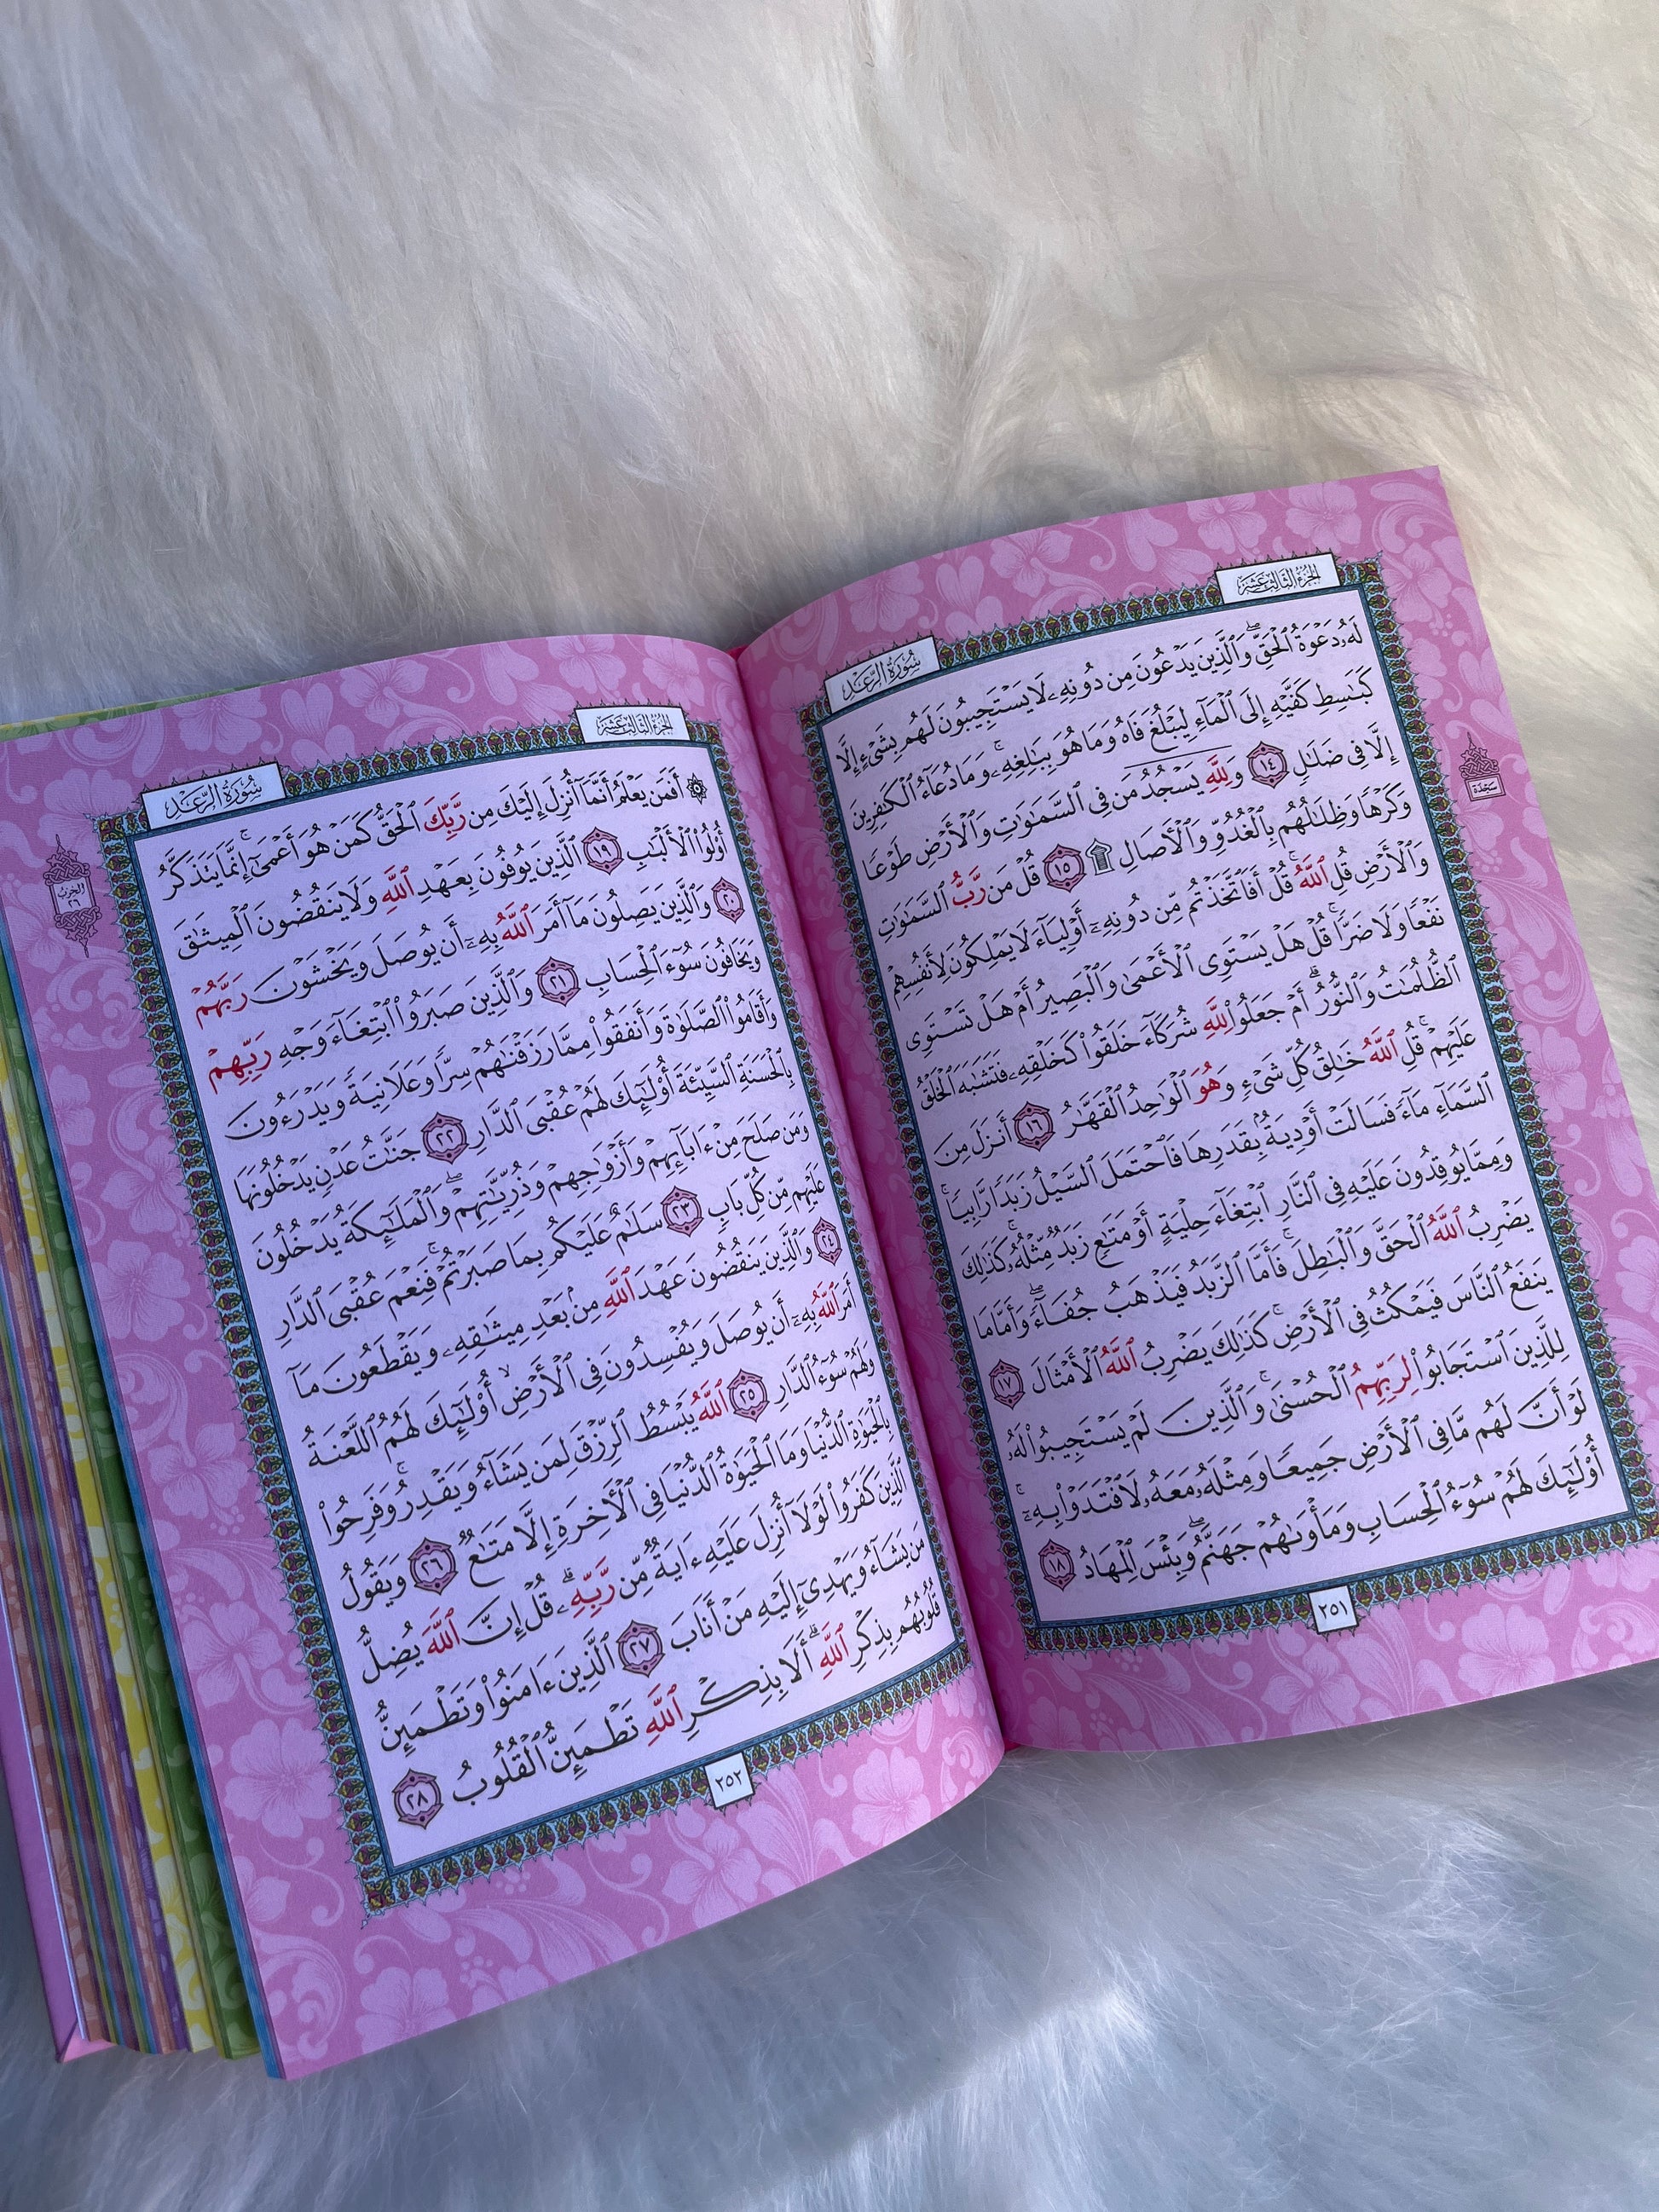 الجزء الثالث عشر
سورة الرعد
لَهُۥ دَعْوَةُ ٱلْحَقِّ ۖ وَٱلَّذِينَ يَدْعُونَ مِن دُونِهِۦ لَا يَسْتَجِيبُونَ لَهُم بِشَىْءٍ إِلَّا
كَبَـٰسِطِ كَفَّيْهِ إِلَى ٱلْمَآءِ لِيَبْلُغَ فَاهُ وَمَا هُوَ بِبَـٰلِغِهِۦ ۚ وَمَا دُعَآءُ ٱلْكَـٰفِرِينَ
إِلَّا فِى ضَلَـٰلٍ ١٤ وَلِلَّهِ يَسْجُدُ مَن فِى ٱلسَّمَـٰوَٰتِ وَٱلْأَرْضِ طَوْعًا
وَكَرْهًا وَظِلَـٰلُهُم بِٱلْغُدُوِّ وَٱلْـَٔاصَالِ ۩ ١٥ قُلْ مَن رَّبُّ ٱلسَّمَـٰوَٰتِ
وَٱلْأَرْضِ قُلِ ٱللَّهُ ۚ قُلْ أَفَٱتَّخَذْتُم مِّن دُونِهِۦٓ أَوْلِيَآءَ لَا يَمْلِكُونَ لِأَنفُسِهِمْ
نَفْعًا وَلَا ضَرًّا ۚ قُلْ هَلْ يَسْتَوِى ٱلْأَعْمَىٰ وَٱلْبَصِيرُ أَمْ هَلْ تَسْتَوِى
ٱلظُّلُمَـٰتُ وَٱلنُّورُ ۗ أَمْ جَعَلُوا۟ لِلَّهِ شُرَكَآءَ خَلَقُوا۟ كَخَلْقِهِۦ فَتَشَـٰبَهَ ٱلْخَلْقُ
عَلَيْهِمْ ۚ قُلِ ٱللَّهُ خَـٰلِقُ كُلِّ شَىْءٍ وَهُوَ ٱلْوَٰحِدُ ٱلْقَهَّـٰرُ ١٦ أَنزَلَ مِنَ
ٱلسَّمَآءِ مَآءً فَسَالَتْ أَوْدِيَةٌۢ بِقَدَرِهَا فَٱحْتَمَلَ ٱلسَّيْلُ زَبَدًا رَّابِيًا ۚ
وَمِمَّا يُوقِدُونَ عَلَيْهِ فِى ٱلنَّارِ ٱبْتِغَآءَ حِلْيَةٍ أَوْ مَتَـٰعٍ زَبَدٌ مِّثْلُهُۥ ۚ كَذَٰلِكَ
يَضْرِبُ ٱللَّهُ ٱلْحَقَّ وَٱلْبَـٰطِلَ ۚ فَأَمَّا ٱلزَّبَدُ فَيَذْهَبُ جُفَآءً ۖ وَأَمَّا مَا
يَنفَعُ ٱلنَّاسَ فَيَمْكُثُ فِى ٱلْأَرْضِ ۚ كَذَٰلِكَ يَضْرِبُ ٱللَّهُ ٱلْأَمْثَالَ ١٧
لِلَّذِينَ ٱسْتَجَابُوا۟ لِرَبِّهِمُ ٱلْحُسْنَىٰ ۚ وَٱلَّذِينَ لَمْ يَسْتَجِيبُوا۟ لَهُۥ
لَوْ أَنَّ لَهُم مَّا فِى ٱلْأَرْضِ جَمِيعًا وَمِثْلَهُۥ مَعَهُۥ لَٱفْتَدَوْا۟ بِهِۦٓ ۚ
أُو۟لَـٰٓئِكَ لَهُمْ سُوٓءُ ٱلْحِسَابِ وَمَأْوَىٰهُمْ جَهَنَّمُ ۖ وَبِئْسَ ٱلْمِهَادُ ١٨
٢٥١
سجدة
الجزء الثالث عشر
سورة الرعد
۞ أَفَمَن يَعْلَمُ أَنَّمَآ أُنزِلَ إِلَيْكَ مِن رَّبِّكَ ٱلْحَقُّ كَمَنْ هُوَ أَعْمَىٰٓ ۚ إِنَّمَا يَتَذَكَّرُ
أُو۟لُوا۟ ٱلْأَلْبَـٰبِ ١٩ ٱلَّذِينَ يُوفُونَ بِعَهْدِ ٱللَّهِ وَلَا يَنقُضُونَ ٱلْمِيثَـٰقَ
٢٠ وَٱلَّذِينَ يَصِلُونَ مَآ أَمَرَ ٱللَّهُ بِهِۦٓ أَن يُوصَلَ وَيَخْشَوْنَ رَبَّهُمْ
وَيَخَافُونَ سُوٓءَ ٱلْحِسَابِ ٢١ وَٱلَّذِينَ صَبَرُوا۟ ٱبْتِغَآءَ وَجْهِ رَبِّهِمْ
وَأَقَامُوا۟ ٱلصَّلَوٰةَ وَأَنفَقُوا۟ مِمَّا رَزَقْنَـٰهُمْ سِرًّا وَعَلَانِيَةً وَيَدْرَءُونَ
بِٱلْحَسَنَةِ ٱلسَّيِّئَةَ أُو۟لَـٰٓئِكَ لَهُمْ عُقْبَى ٱلدَّارِ ٢٢ جَنَّـٰتُ عَدْنٍ يَدْخُلُونَهَا
وَمَن صَلَحَ مِنْ ءَابَآئِهِمْ وَأَزْوَٰجِهِمْ وَذُرِّيَّـٰتِهِمْ ۖ وَٱلْمَلَـٰٓئِكَةُ يَدْخُلُونَ
عَلَيْهِم مِّن كُلِّ بَابٍ ٢٣ سَلَـٰمٌ عَلَيْكُم بِمَا صَبَرْتُمْ ۚ فَنِعْمَ عُقْبَى ٱلدَّارِ
٢٤ وَٱلَّذِينَ يَنقُضُونَ عَهْدَ ٱللَّهِ مِنۢ بَعْدِ مِيثَـٰقِهِۦ وَيَقْطَعُونَ مَآ
أَمَرَ ٱللَّهُ بِهِۦٓ أَن يُوصَلَ وَيُفْسِدُونَ فِى ٱلْأَرْضِ ۙ أُو۟لَـٰٓئِكَ لَهُمُ ٱللَّعْنَةُ
وَلَهُمْ سُوٓءُ ٱلدَّارِ ٢٥ ٱللَّهُ يَبْسُطُ ٱلرِّزْقَ لِمَن يَشَآءُ وَيَقْدِرُ ۚ وَفَرِحُوا۟
بِٱلْحَيَوٰةِ ٱلدُّنْيَا وَمَا ٱلْحَيَوٰةُ ٱلدُّنْيَا فِى ٱلْـَٔاخِرَةِ إِلَّا مَتَـٰعٌ ٢٦ وَيَقُولُ
ٱلَّذِينَ كَفَرُوا۟ لَوْلَآ أُنزِلَ عَلَيْهِ ءَايَةٌ مِّن رَّبِّهِۦ ۗ قُلْ إِنَّ ٱللَّهَ يُضِلُّ
مَن يَشَآءُ وَيَهْدِىٓ إِلَيْهِ مَنْ أَنَابَ ٢٧ ٱلَّذِينَ ءَامَنُوا۟ وَتَطْمَئِنُّ
قُلُوبُهُم بِذِكْرِ ٱللَّهِ ۗ أَلَا بِذِكْرِ ٱللَّهِ تَطْمَئِنُّ ٱلْقُلُوبُ ٢٨
٢٥٢
الحزب
٢٦